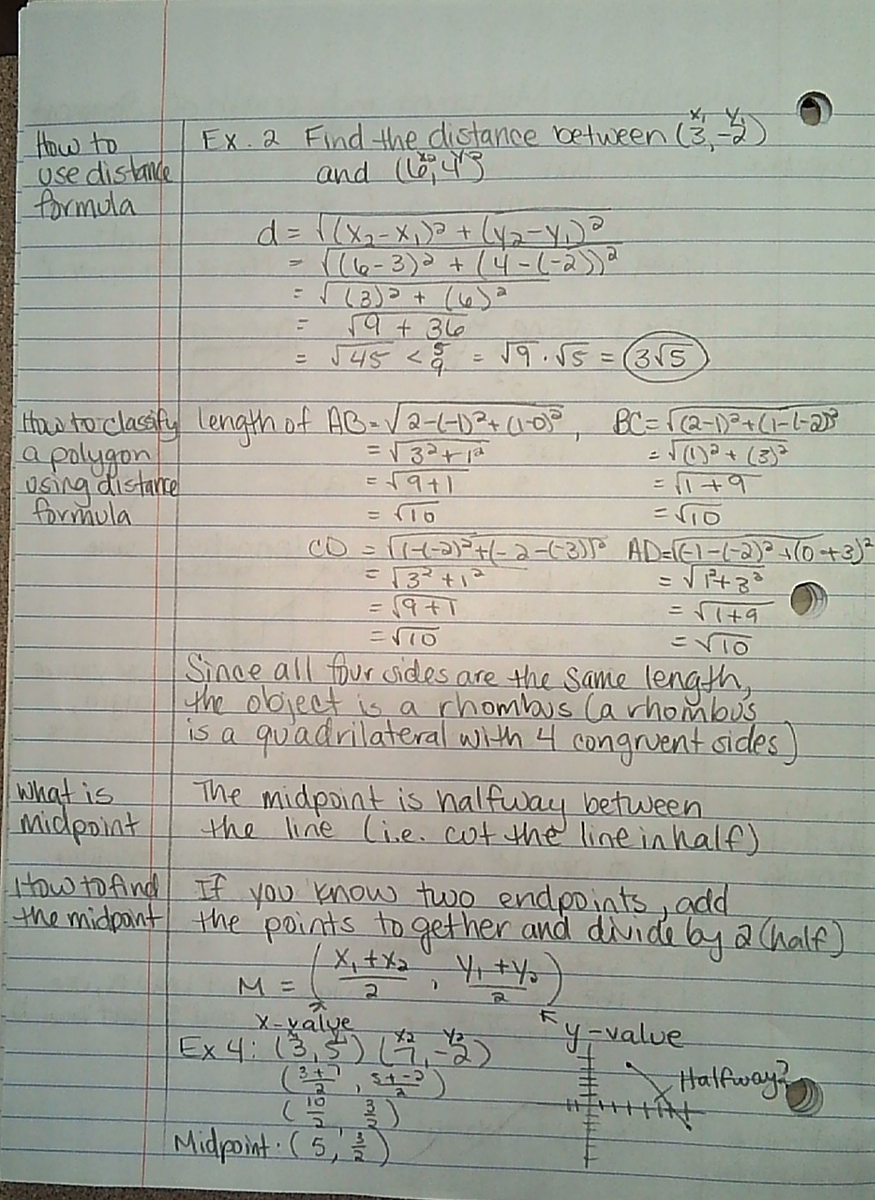 How to use distance formula
Ex. 2 Find the distance between (3, -2)
x₁ y₁
and (6, 4)
x₂ y₂
d = √(x₂-x₁)² + (y₂-y₁)²
= √(6-3)² + (4-(-2))²
= √(3)² + (6)²
= √9 + 36
= √45 < 5 9 = √9 · √5 = 3√5
How to classify a polygon using distance formula
length of AB = √2-(-1)² + (1-0)², BC = √(2-1)² + (1-(-2))²
= √3² + 1² = √(1)² + (3)²
= √9+1 = √1+9
= √10 = √10
CD = √(1-(-2)² + (-2-(-3))² AD = √(-1-(-2)² + (0+3)²
= √3² + 1² = √1² + 3²
= √9+1 = √1+9
= √10 = √10
Since all four sides are the same length,
the object is a rhombus (a rhombus
is a quadrilateral with 4 congruent sides)
What is midpoint
The midpoint is halfway between
the line (i.e. cut the line in half)
How to find the midpoint
If you know two endpoints, add
the points together and divide by 2 (half)
M = (x₁+x₂/2, y₁+y₂/2)
x-value y-value
Ex 4: (3, 5) (7, -2)
x₂ y₂
(3+7/2, 5+-2/2)
Halfway?
(10/2, 3/2)
Midpoint: (5, 3/2)